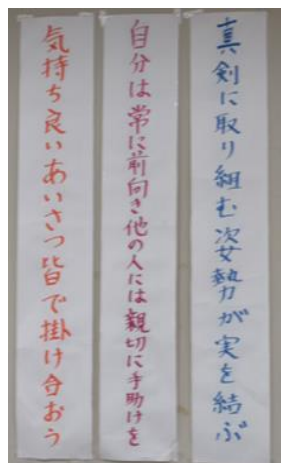 真剣に取り組む姿勢が実を結ぶ
自分は常に前向き他の人には親切に手助けを
気持ち良いあいさつ皆で掛け合おう